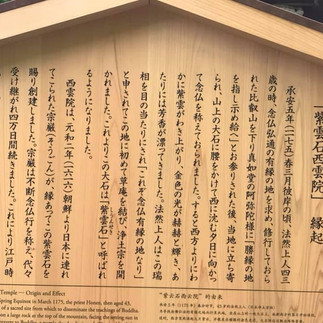 「紫雲石西雲院」縁起
承安五年(一一七五)春三月彼岸の頃、法然上人四三
歳の時、念仏弘通の有縁の地を求め、修行しておら
れた比叡山を下り真如堂の阿弥陀様に「勝縁の地
を指し示め給へ」と参りされた後、当地に立ち寄
られ、山上の大石に腰をかけて西に沈む夕日に向かっ
て念仏を称えておられました。すると西方よりにわ
かに紫雲がわき上がり、金色の光が赫赫と輝き、あ
たりには芳香が漂ってきました。法然上人はこの瑞
相を目の当たりにされ「これぞ念仏有縁の地なり」
と申されてこの地に初めて草庵を結び、浄土宗を開
かれました。これよりこの大石は「紫雲石」と呼ばれ
るようになりました。
西雲院は、元和二年(一六一六)朝鮮より日本に連れ
てこられた宗厳(そうごん)が、縁あってこの紫雲石を
賜り創建しました。宗厳は不断念仏行を称え、代々
受け継がれ四万日間続きました。これにより江戸時
Temple — Origin and Effect
Spring Equinox in March 1175, the priest Honen, then aged 43,
of a sacred site from which to disseminate the teachings of Buddha.
"紫云石西云院" 的由来